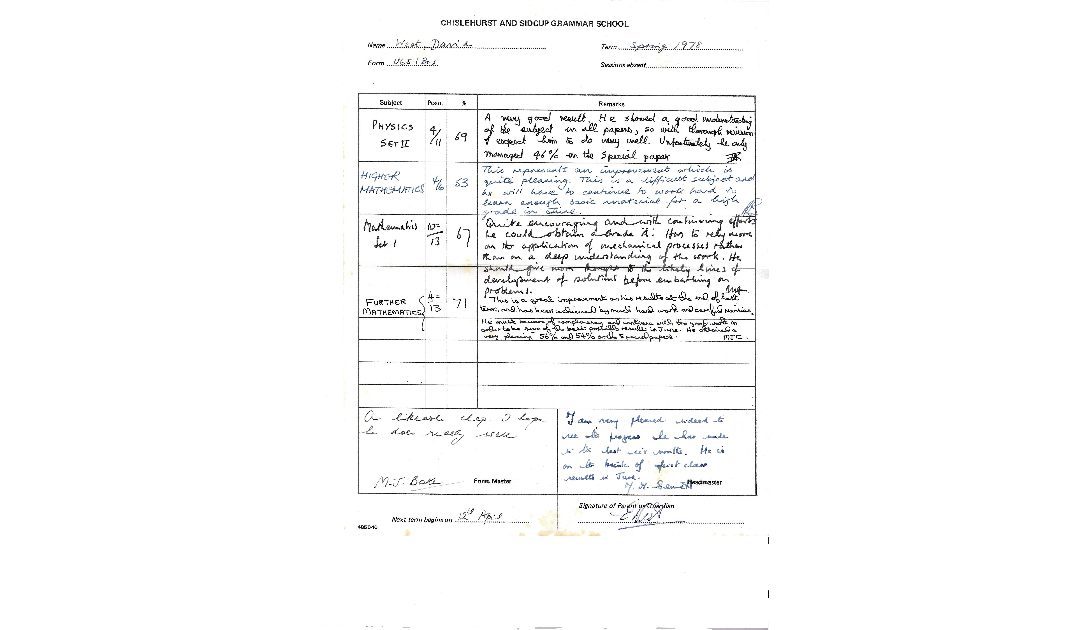 CHISLEHURST AND SIDCUP GRAMMAR SCHOOL
Name West David Term Spring 1978
Form Sessions absent
Subject Posn. % Remarks
PHYSICS SET II 4/11 69 A very good result. He showed a good understanding
of the subject in all papers, so with thorough revision
I expect him to do very well. Unfortunately he only
managed 46% on the Special paper
HIGHER MATHEMATICS 4/6 53 This represents an improvement which is
quite pleasing. This is a difficult subject and
he will have to continue to work hard to
learn enough basic material for a high
grade in June.
Mathematics Set 1 10=/13 67 Quite encouraging and with continuing efforts
he could obtain a Grade A. Has to rely more
on the application of mechanical processes rather
than on a deep understanding of the work. He
should give more thought to the likely lines of
development of solutions before embarking on
problems.
FURTHER MATHEMATICS 4=/13 71 This is a great improvement on his results at the end of last
term, and has been achieved by much hard work and careful revision.
He must
order to be sure of the best results in June. He obtained a
very pleasing 56% and 54% on the Special papers. MJC
A likeable chap I hope
he does really well
M.J. Baker Form Master
I am very pleased indeed to
see the progress he has made
in the last six months. He is
on the brink of first class
results in June.
Headmaster
Signature of Parent or Guardian
Next term begins on April